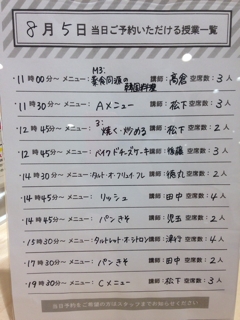 8月5日 当日ご予約いただける授業一覧
M3:
・11時00分〜 メニュー: 薬食同源の 講師: 高倉 空席数: 3人
韓国料理
・11時30分〜 メニュー: Aメニュー 講師: 松下 空席数: 3人
3:
・12時45分〜 メニュー: 焼く・炒める 講師: 松下 空席数: 2人
・12時45分〜 メニュー: ベイクドチーズケーキ 講師: 空席数: 3人
・14時30分〜 メニュー: タルト・オ・フリュイ・フレ 講師: 空席数: 2人
・14時45分〜 メニュー: リッシュ 講師: 田中 空席数: 4人
・14時45分〜 メニュー: パンきそ 講師: 児玉 空席数: 2人
・15時30分〜 メニュー: タルトレット・オ・シトロン 講師: 空席数: 4人
・17時30分〜 メニュー: パンきそ 講師: 田中 空席数: 2人
・19時30分〜 メニュー: Cメニュー 講師: 松下 空席数: 3人
当日予約をご希望の方はスタッフまでお知らせください